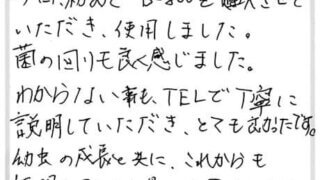 いただき、使用しました。
菌の回りも良く感じました。
わからない事も、TELで丁寧に
説明していただき、とても良かったです。
幼虫の成長と共に、これからも